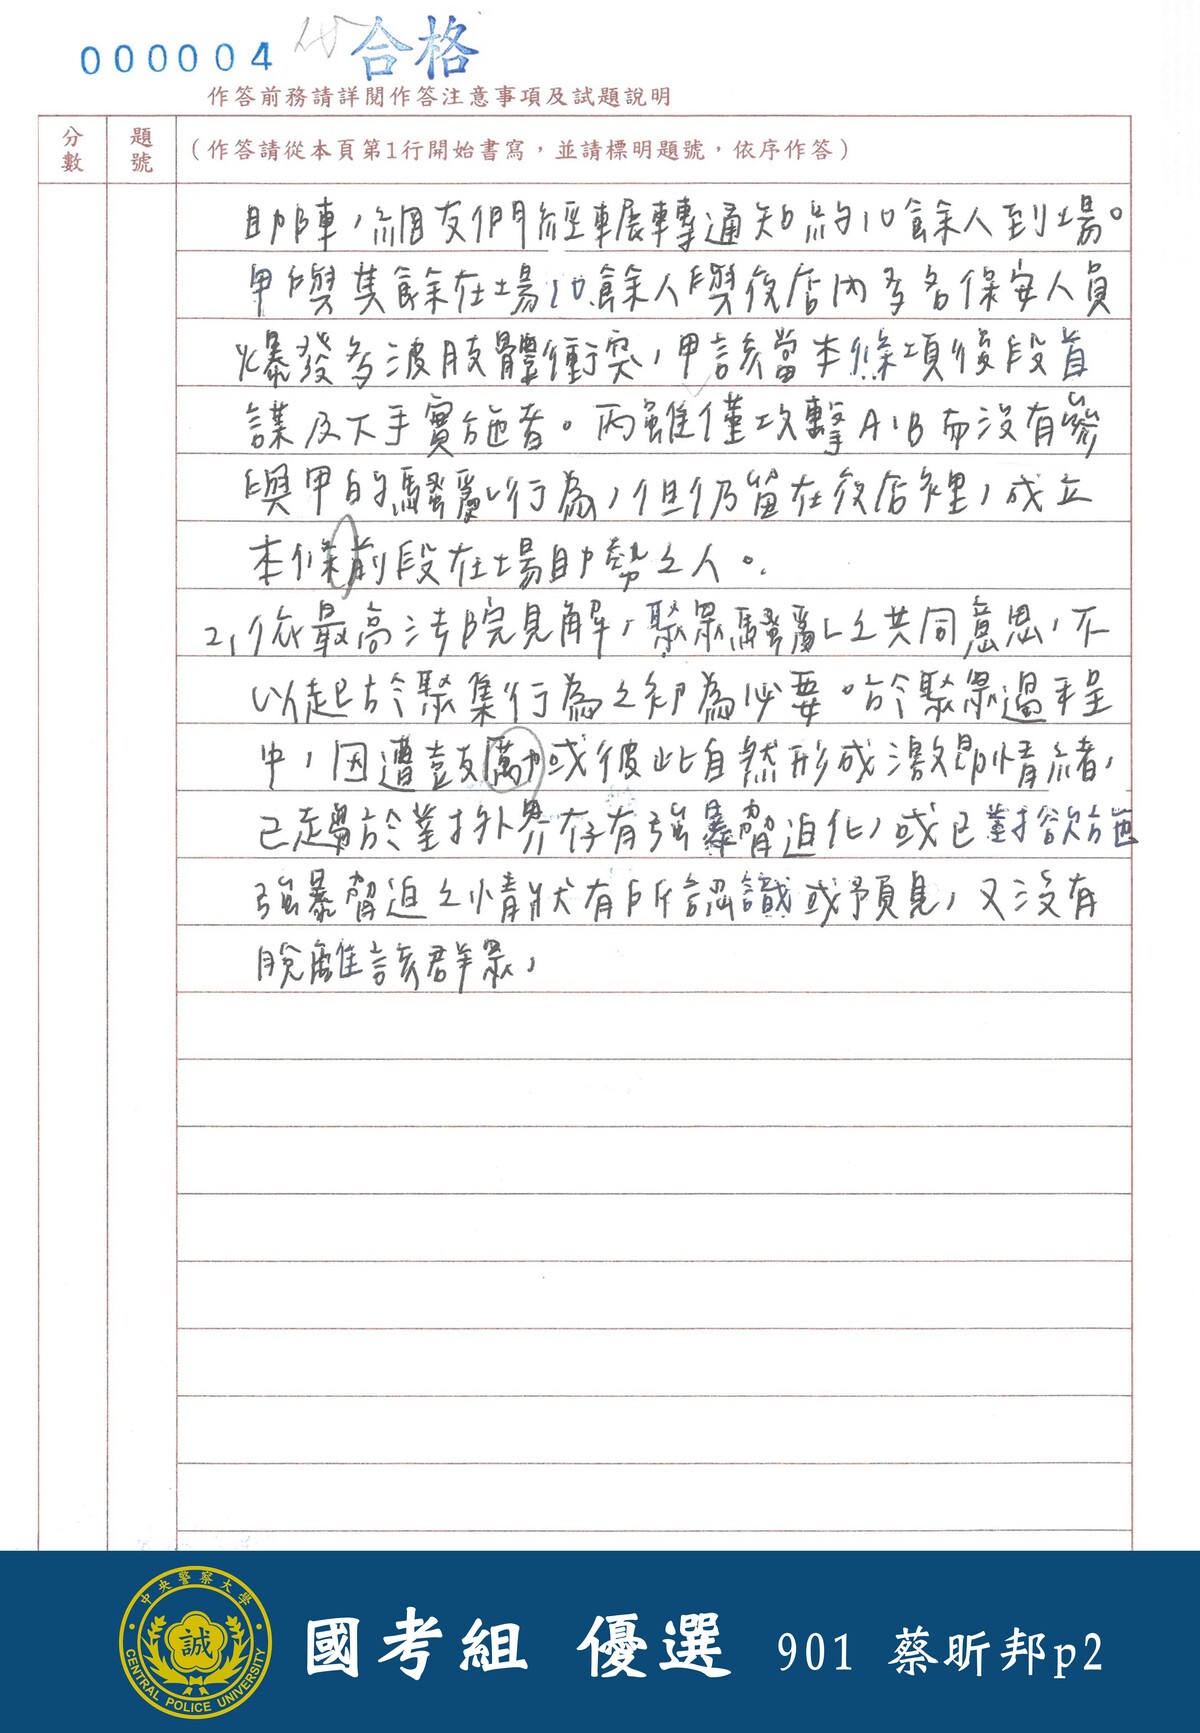 000004 合格
作答前務請詳閱作答注意事項及試題說明
分數 題號 (作答請從本頁第1行開始書寫，並請標明題號，依序作答)
助陣，網友們經輾轉通知約10餘人到場。
甲與其餘在場10餘人與夜店內多名保安人員
爆發多波肢體衝突，甲該當本條項後段首
謀及下手實施者。丙雖僅攻擊A、B而沒有參
與甲的騷亂行為，但仍留在夜店裡，成立
本條前段在場助勢之人。
2、依最高法院見解，聚眾騷亂之共同意思，不
以起於聚集行為之初為必要。於聚眾過程
中，因遭鼓勵或彼此自然形成激昂情緒，
已趨於對外界存有強暴脅迫化，或已對欲施
強暴脅迫之情狀有所認識或預見，又沒有
脫離該群眾，
中央警察大學
誠
CENTRAL POLICE UNIVERSITY
國考組 優選 901 蔡昕邦p2